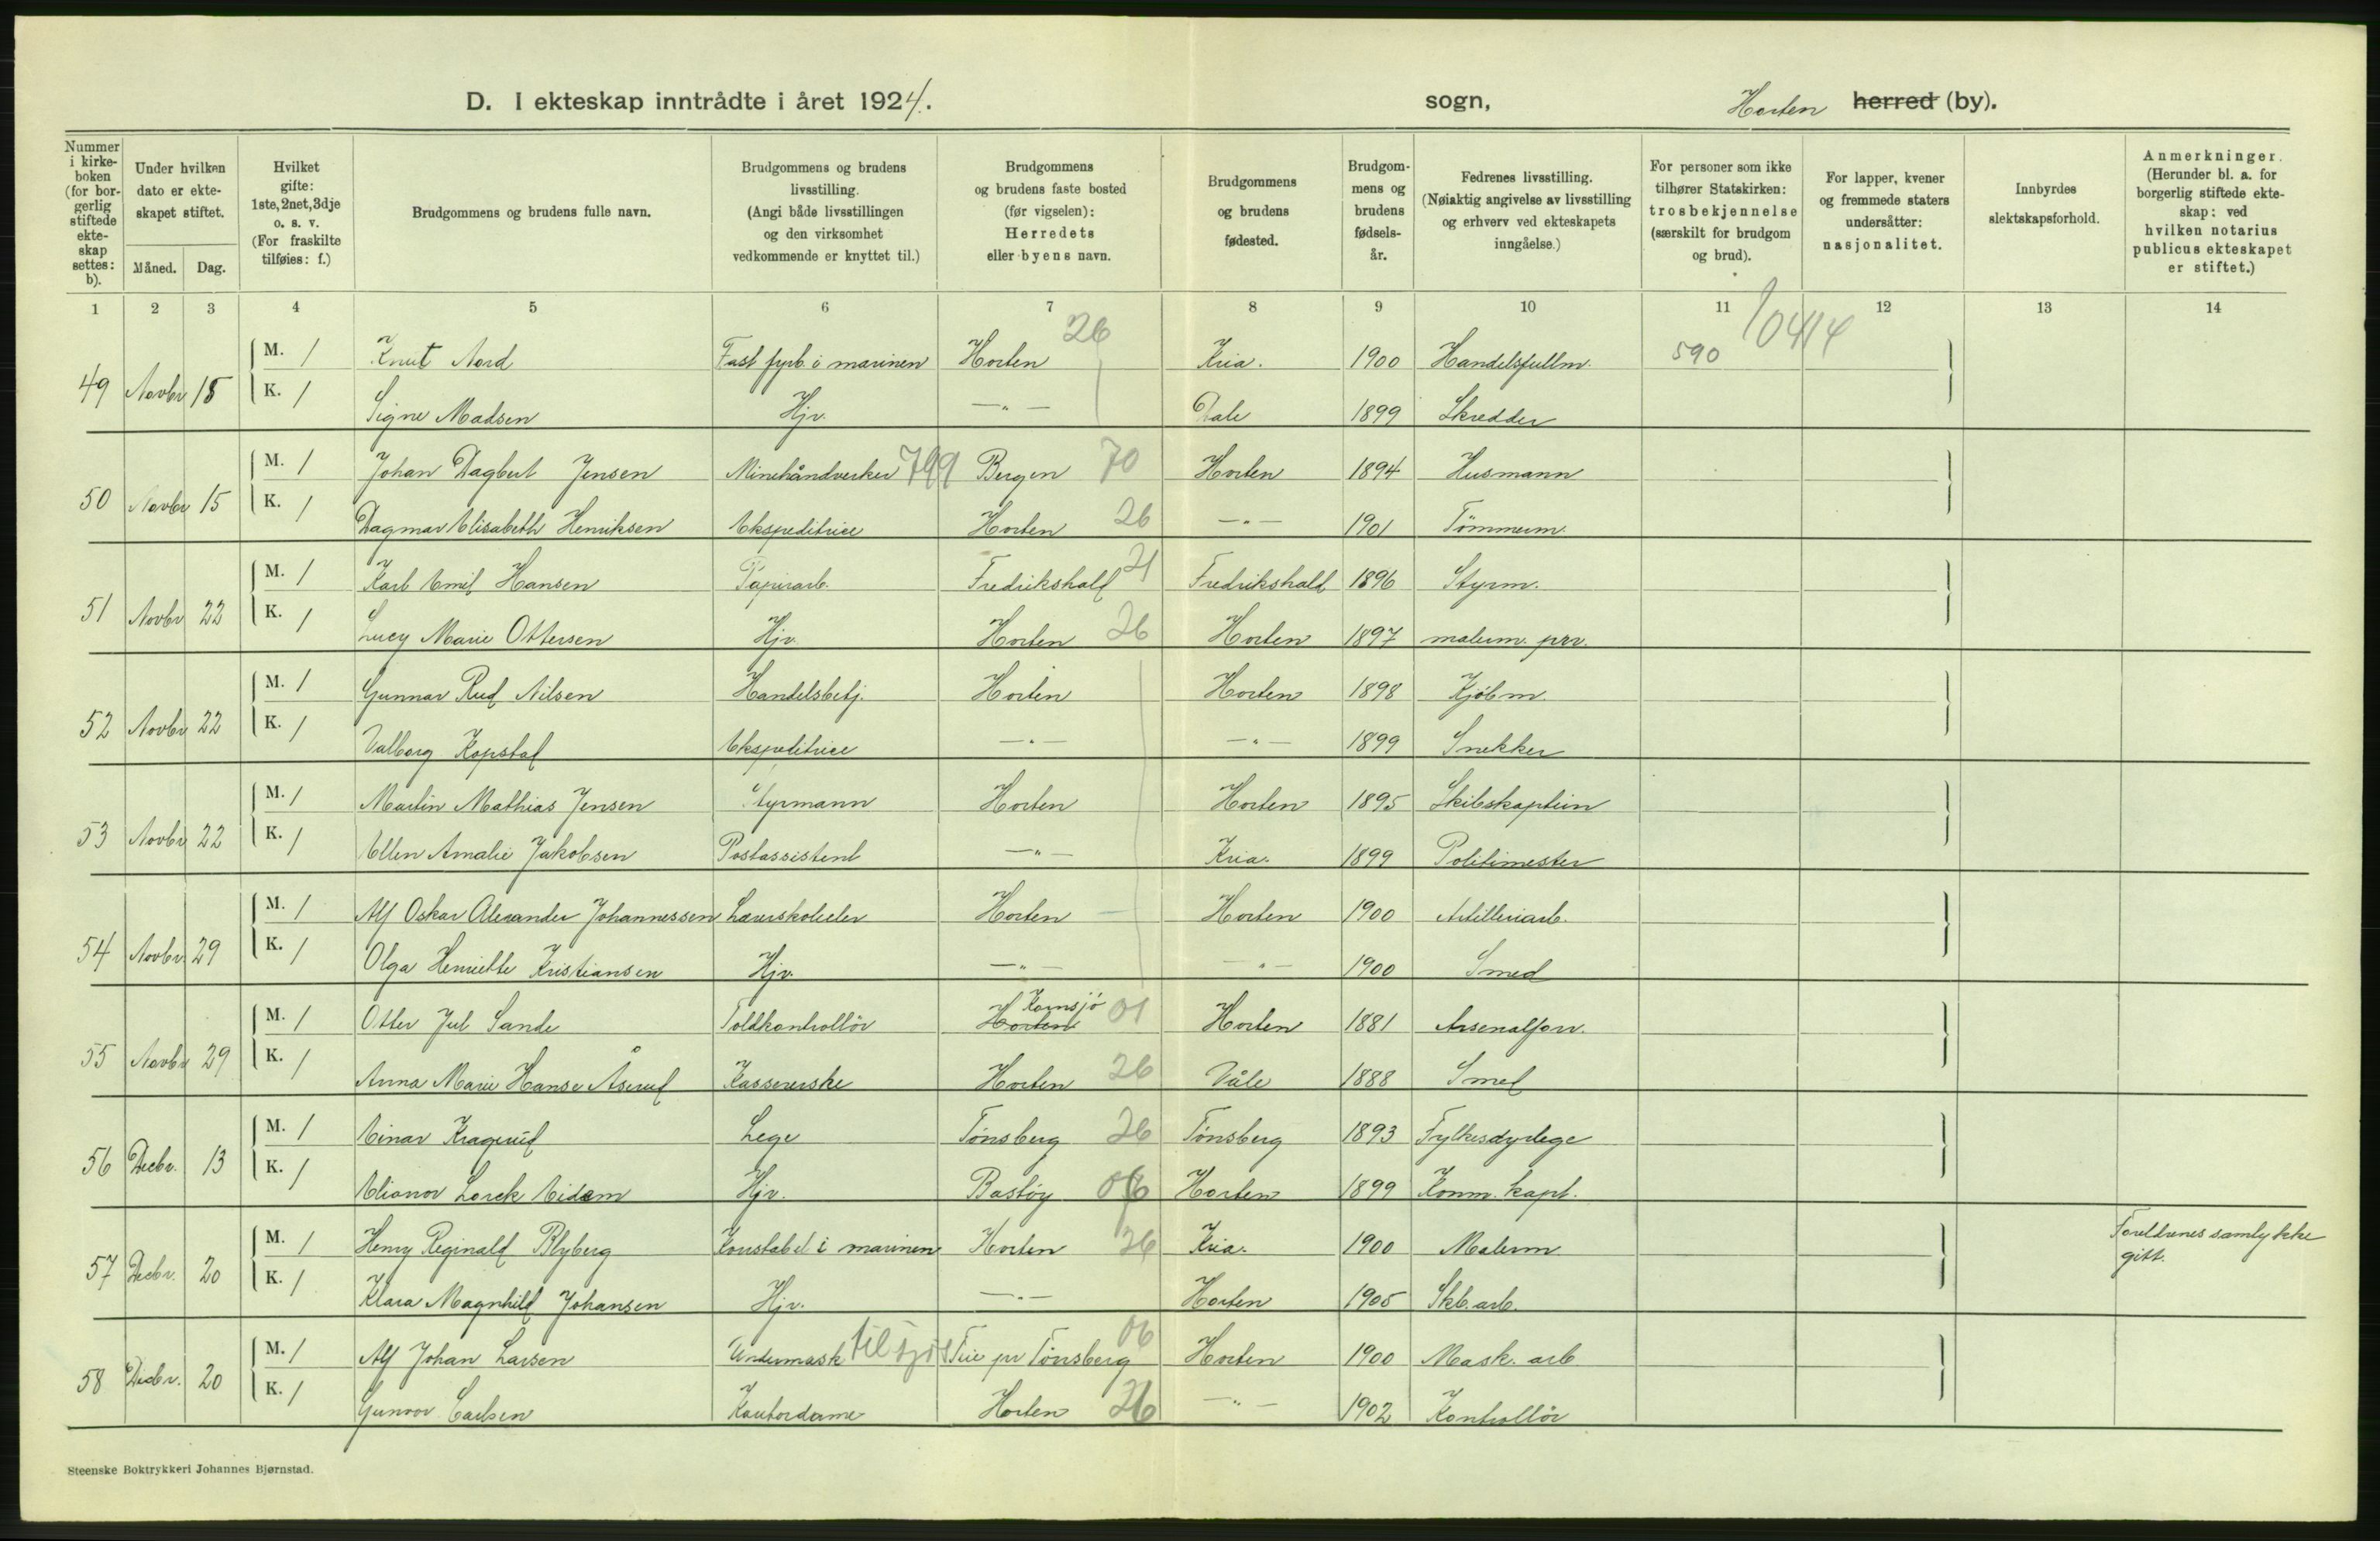 D. I ekteskap inntrådte i året 1924. sogn, Horten herred (by).
Nummer i kirkeboken (for borgerlig stiftede ekteskap settes: b). | Under hvilken dato er ekteskapet stiftet. Måned. Dag. | Hvilket gifte: 1ste, 2net, 3dje o. s. v. (For fraskilte tilføies: f.) | Brudgommens og brudens fulle navn. | Brudgommens og brudens livsstilling. (Angi både livsstillingen og den virksomhet vedkommende er knyttet til.) | Brudgommens og brudens faste bosted (før vigselen): Herredets eller byens navn. | Brudgommens og brudens fødested. | Brudgommens og brudens fødselsår. | Fedrenes livsstilling. (Nøiaktig angivelse av livsstilling og erhverv ved ekteskapets inngåelse.) | For personer som ikke tilhører Statskirken: trosbekjennelse (særskilt for brudgom og brud). | For lapper, kvener og fremmede staters undersåtter: nasjonalitet. | Innbyrdes slektskapsforhold. | Anmerkninger. (Herunder bl. a. for borgerlig stiftede ekteskap: ved hvilken notarius publicus ekteskapet er stiftet.)
1 2 3 4 5 6 7 8 9 10 11 12 13 14
26 10414
M. 1 Knut Nord Fast fyrb. i marinen Horten Kria. 1900 Handelsfullm. 590
49 Novbr 15
K. 1 Signe Madsen Hjv. —"— Dale 1899 Skredder
M. 1 Johan Dagbert Jensen Minehåndverker 799 Bergen 70 Horten 1894 Husmann
50 Novbr 15
K. 1 Dagmar Elisabeth Henriksen Ekspeditrice Horten 26 —"— 1901 Tömmerm.
M. 1 Karl Emil Hansen Papirarb. Fredrikshald 21 Fredrikshald 1896 Styrm.
51 Novbr 22
K. 1 Lucy Marie Ottersen Hjv. Horten 26 Horten 1897 malerm. prv.
M. 1 Gunnar Rud Nilsen Handelsbetj. Horten Horten 1898 Kjöbm.
52 Novbr 22
K. 1 Valborg Kopstad Ekspeditrice —"— —"— 1899 Snekker
M. 1 Martin Mathias Jensen Styrmann Horten Horten 1895 Skibskaptein
53 Novbr 22
K. 1 Ellen Amalie Jakobsen Postassistent —"— Kria. 1899 Politimester
M. 1 Alf Oskar Alexander Johannessen Lærerskoleelev Horten Horten 1900 Artilleriarb.
54 Novbr 29
K. 1 Olga Henriette Kristiansen Hjv. —"— —"— 1900 Smed
Kornsjö
M. 1 Otter Jul Sande Toldkontrollör Horten 01 Horten 1881 Arsenalforv.
55 Novbr 29
K. 1 Anna Marie Hanse Åserud Kassererske Horten 26 Våle 1888 Smed
M. 1 Einar Kragerud Lege Tönsberg 26 Tönsberg 1893 Fylkesdyrlege
56 Decbr. 13
K. 1 Elianor Lorck Eidem Hjv. Bastöy 06 Horten 1899 Komm. kapt.
M. 1 Henry Reginald Blyberg Konstabel i marinen Horten 26 Kria. 1900 Malerm. Foreldrenes samtykke
57 Decbr. 20 gitt.
K. 1 Klara Magnhild Johansen Hjv. —"— Horten 1905 Skb. arb.
M. 1 Alf Johan Larsen Undermask. til sjös Teie pr Tönsberg 06 Horten 1900 Mask. arb
58 Decbr. 20
K. 1 Gunvor Carlsen Kontordame Horten 26 —"— 1902 Kontrollör
Steenske Boktrykkeri Johannes Bjørnstad.